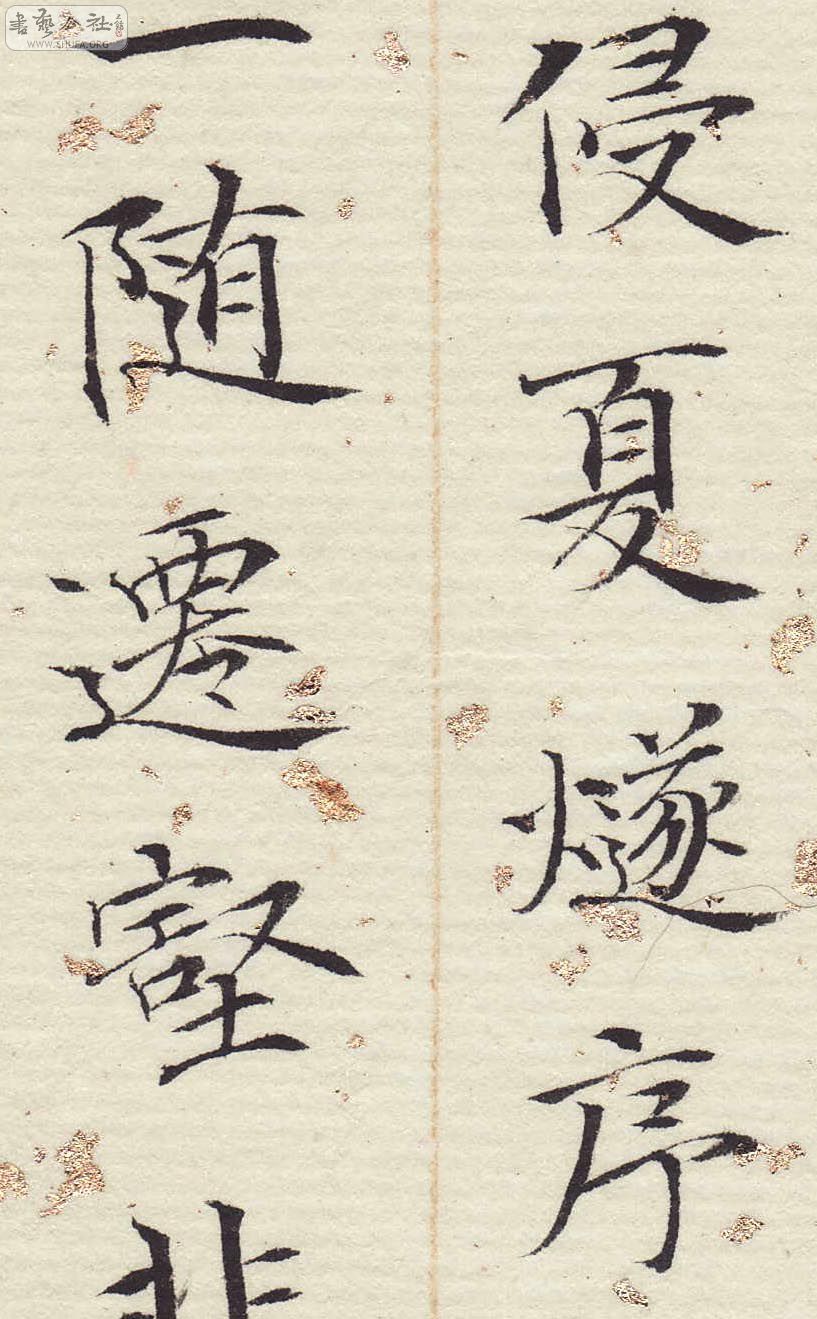 侵夏燧序
一随遷壑
書藝公社
WWW.SHUFA.ORG